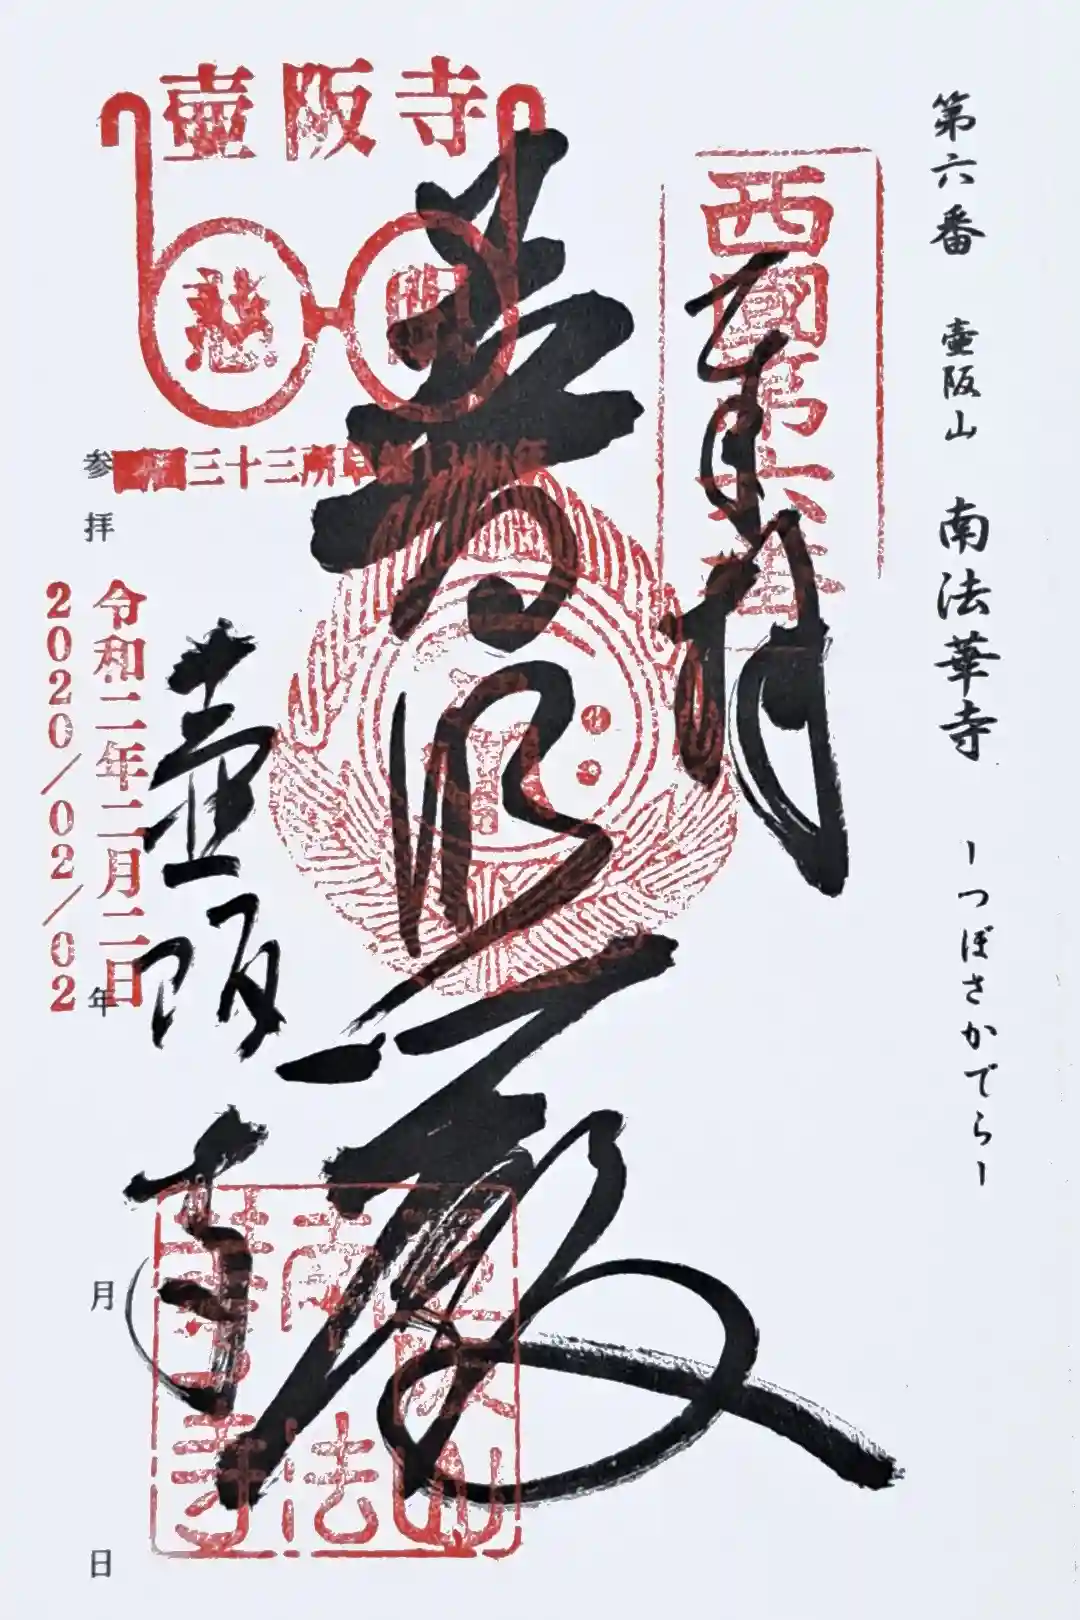 第六番 壺阪山 南法華寺 -つぼさかでら-
西國第六番
奉拝
普照殿
壺阪寺
壺阪寺
慈 眼
三十三所草創1300年
参拝 年 月 日
令和二年二月二日
2020/02/02
壺阪山
南法
華寺